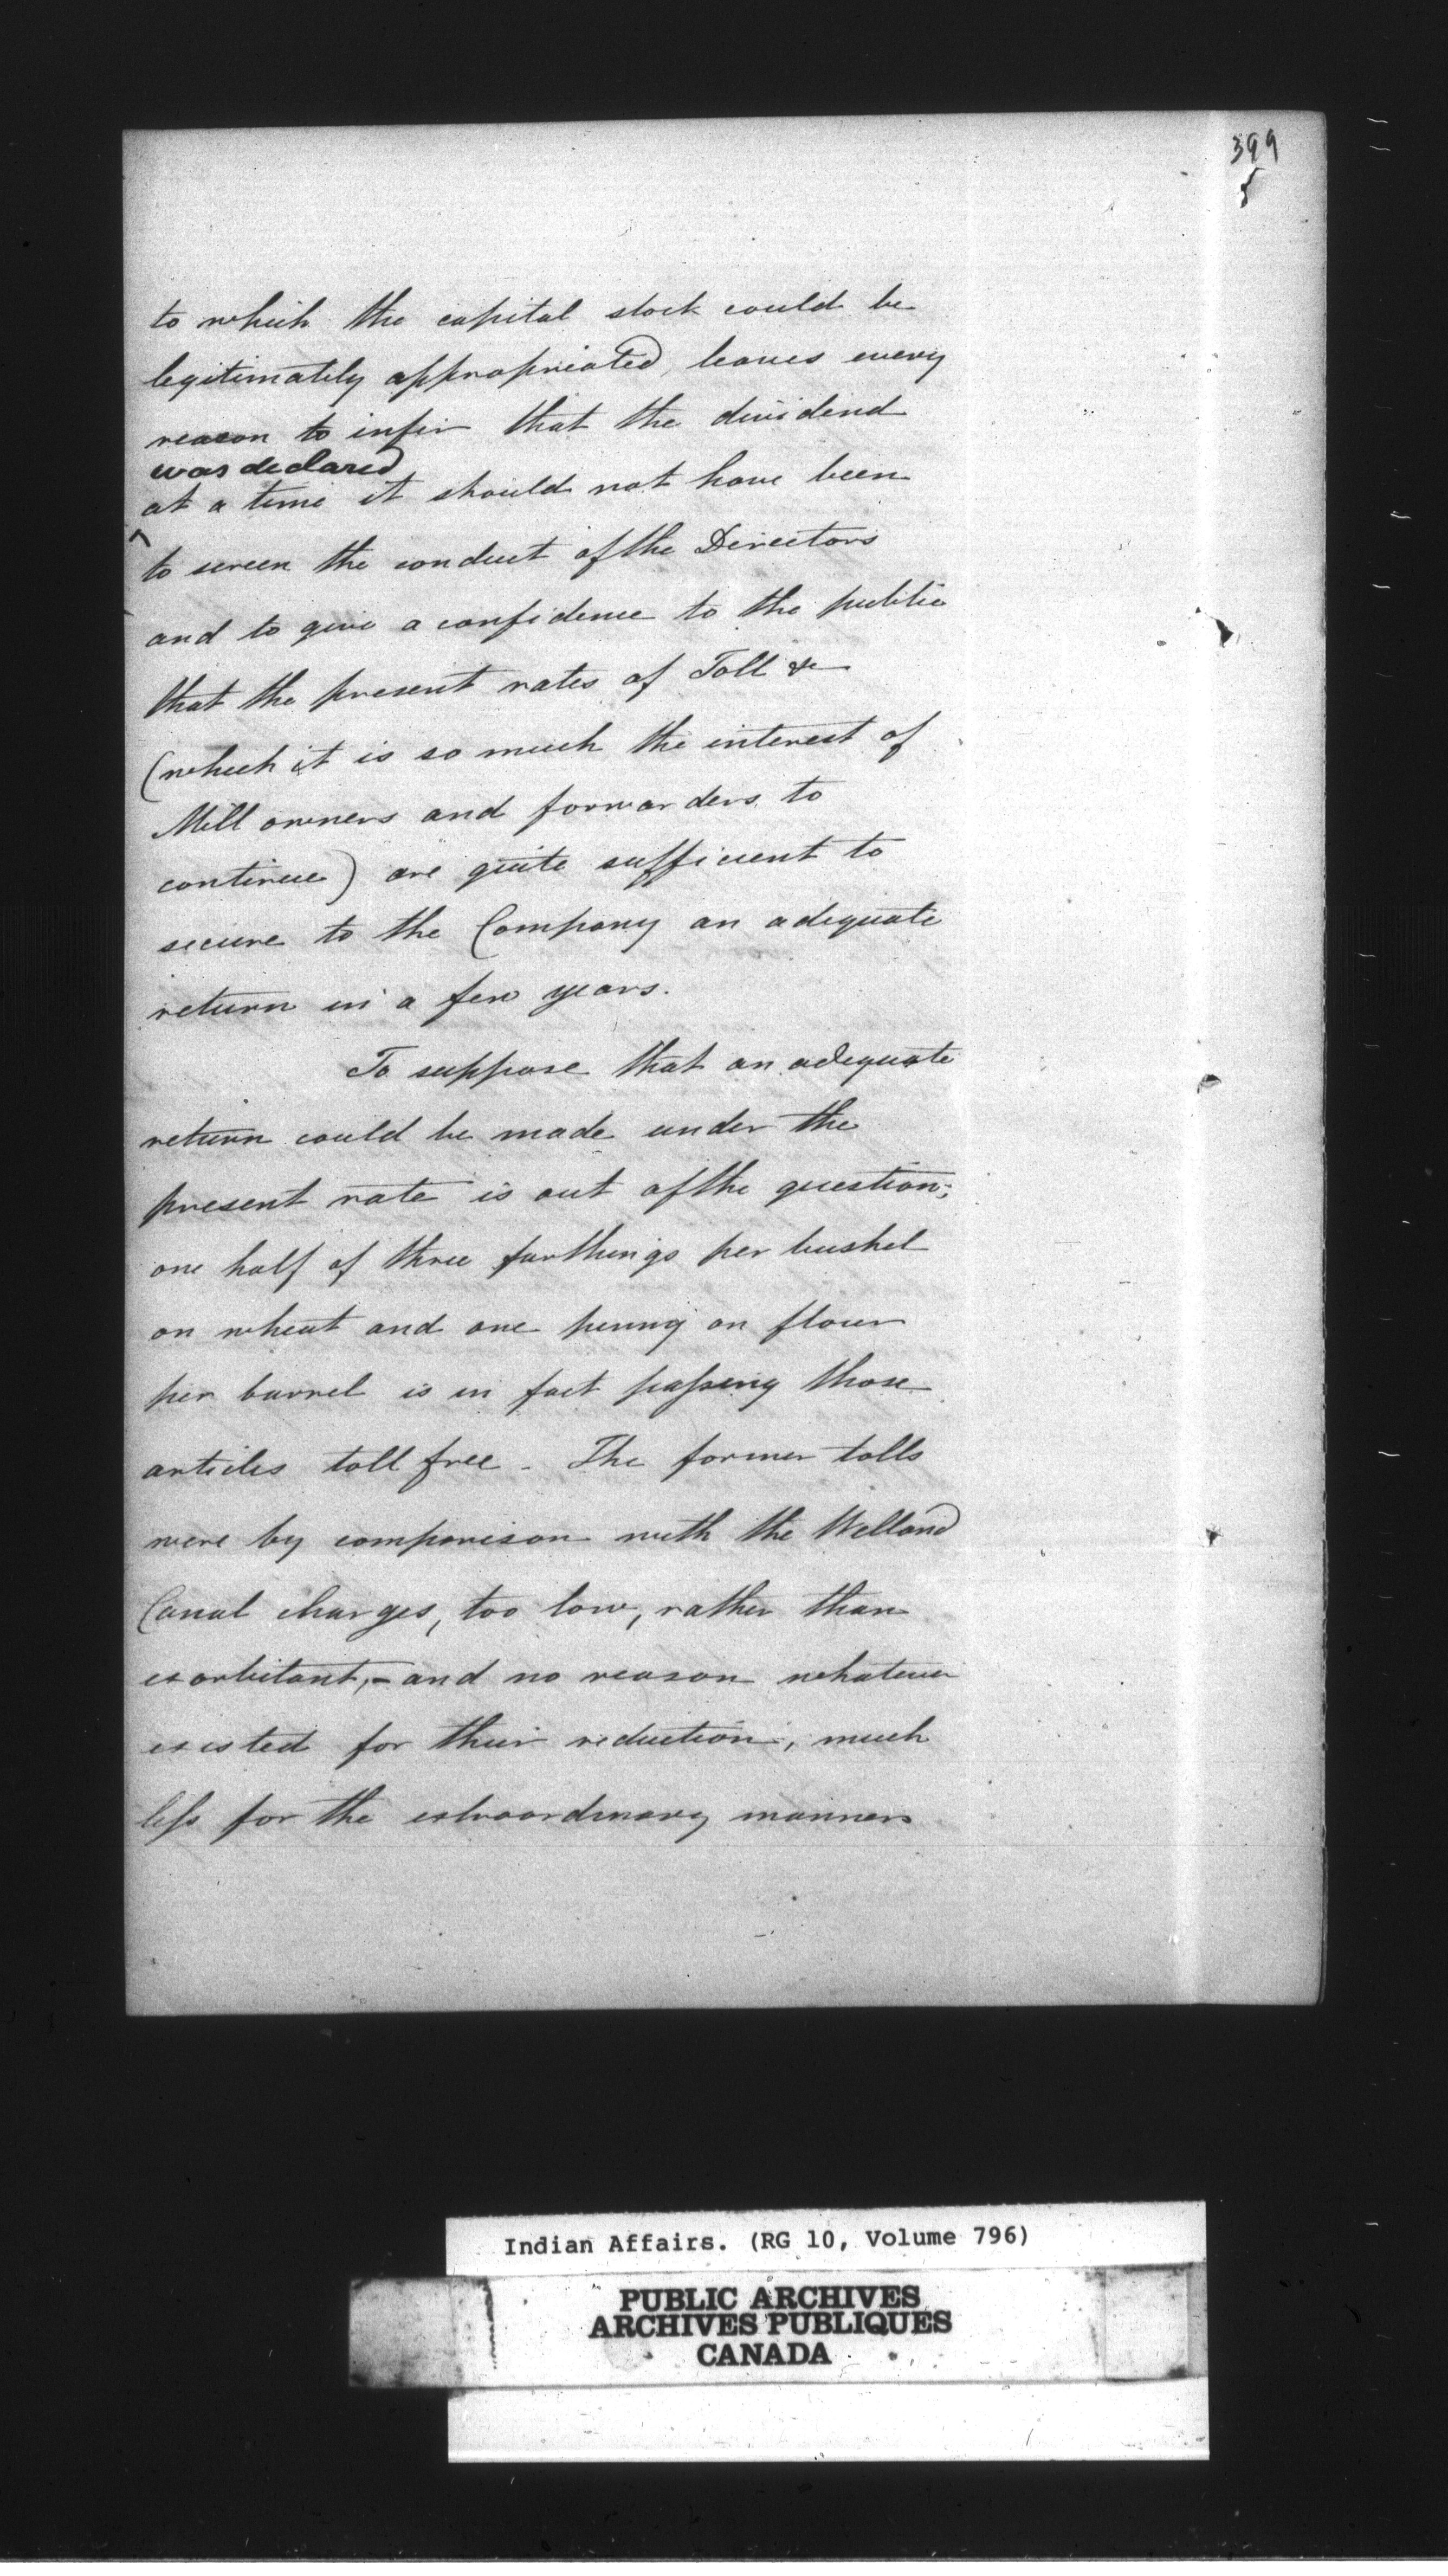 399
5
to which the capital stock could be
legitimately appropriated, leaves every
reason to infer that the dividend
was declared
at a time it should not have been
^
to screen the conduct of the Directors
and to give a confidence to the public
that the present rates of Toll &c
(which it is so much the interest of
Mill owners and forwarders to
continue) are quite sufficient to
secure to the Company an adequate
return in a few years.
To suppose that an adequate
return could be made under the
present rate is out of the question;
one half of three farthings per bushel
on wheat and one penny on flour
per barrel is in fact passing those
articles toll free - The former tolls
were by comparison with the Welland
Canal charges, too low, rather than
exorbitant,- and no reason whatever
existed for their reduction, much
less for the extraordinary manner
Indian Affairs. (RG 10, Volume 796)
PUBLIC ARCHIVES
ARCHIVES PUBLIQUES
CANADA